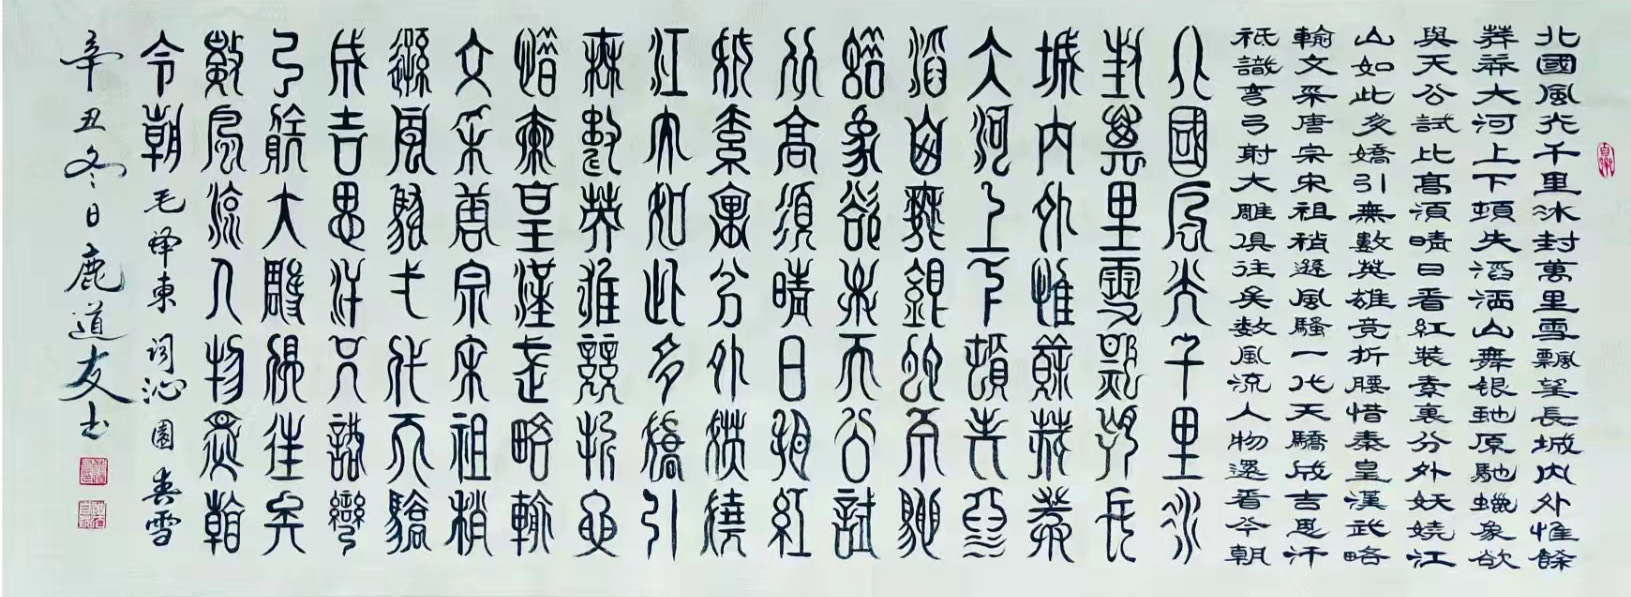 北國風光千里冰封萬里雪飄望長城內外惟餘
莽莽大河上下頓失滔滔山舞银虵原馳蠟象欲
與天公試比高須晴日看紅裝素裹分外妖嬈江
山如此多嬌引無數英雄竞折腰惜秦皇漢武略
輸文采唐宗宋祖稍遜風騷一代天驕成吉思汗
祇識彎弓射大雕俱往矣数風流人物還看今朝
北國風光千里冰
封萬里雪飄望長
城內外惟餘莽莽
大河上下頓失滔
滔山舞銀蛇原馳
蠟象欲與天公試
比高須晴日看紅
裝素裹分外妖嬈
江山如此多嬌引
無數英雄競折腰
惜秦皇漢武略輸
文采唐宗宋祖稍
遜風騷一代天驕
成吉思汗只識彎
弓射大雕俱往矣
數風流人物還看
今朝 毛泽東词沁園春雪
辛丑冬日鹿道友书